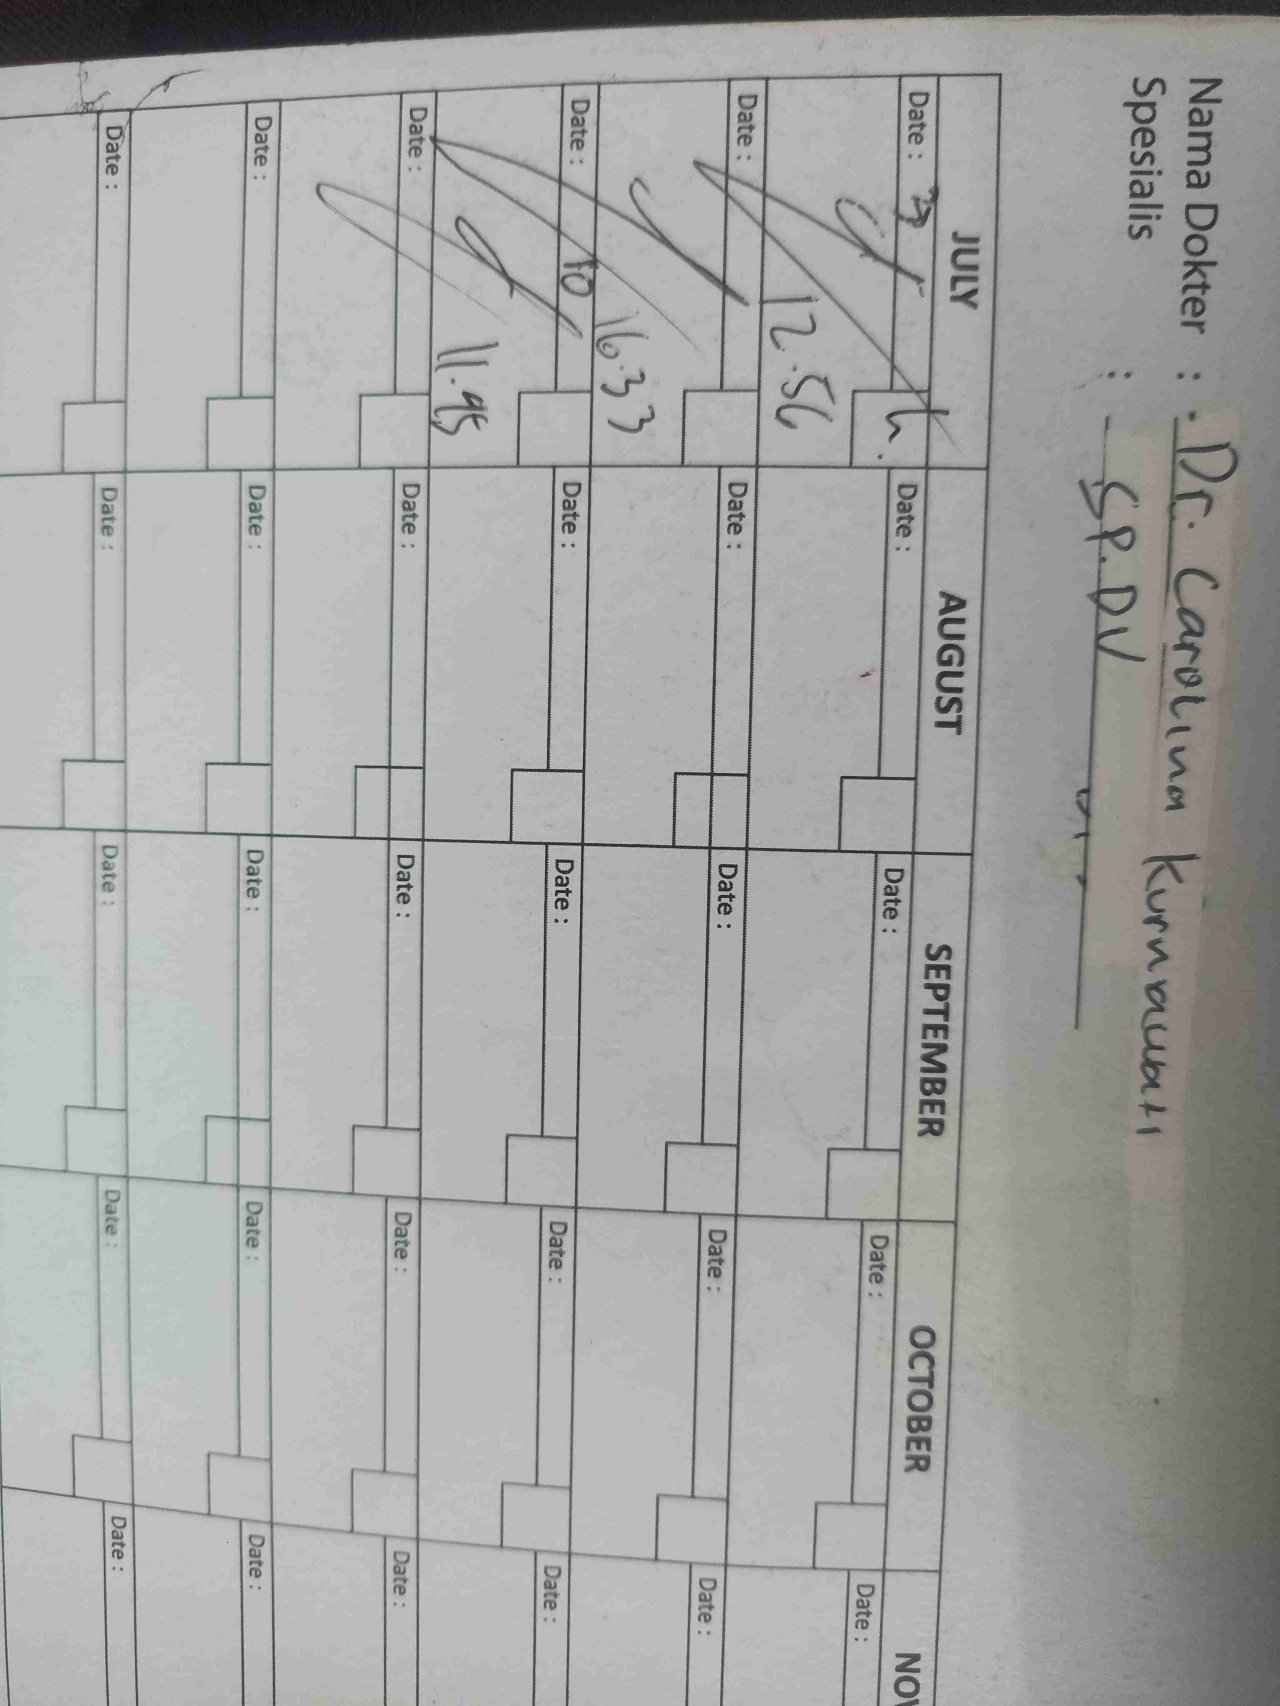 Nama Dokter : . Dr. Carolina Kurniawati
Spesialis : SP.DV
JULY AUGUST SEPTEMBER OCTOBER NOV
Date : Date : Date : Date : Date :
12.56
Date : Date : Date : Date : Date :
16.33
Date : 10 Date : Date : Date : Date :
11.45
Date : Date : Date : Date : Date :
Date : Date : Date : Date : Date :
Date : Date : Date : Date : Date :